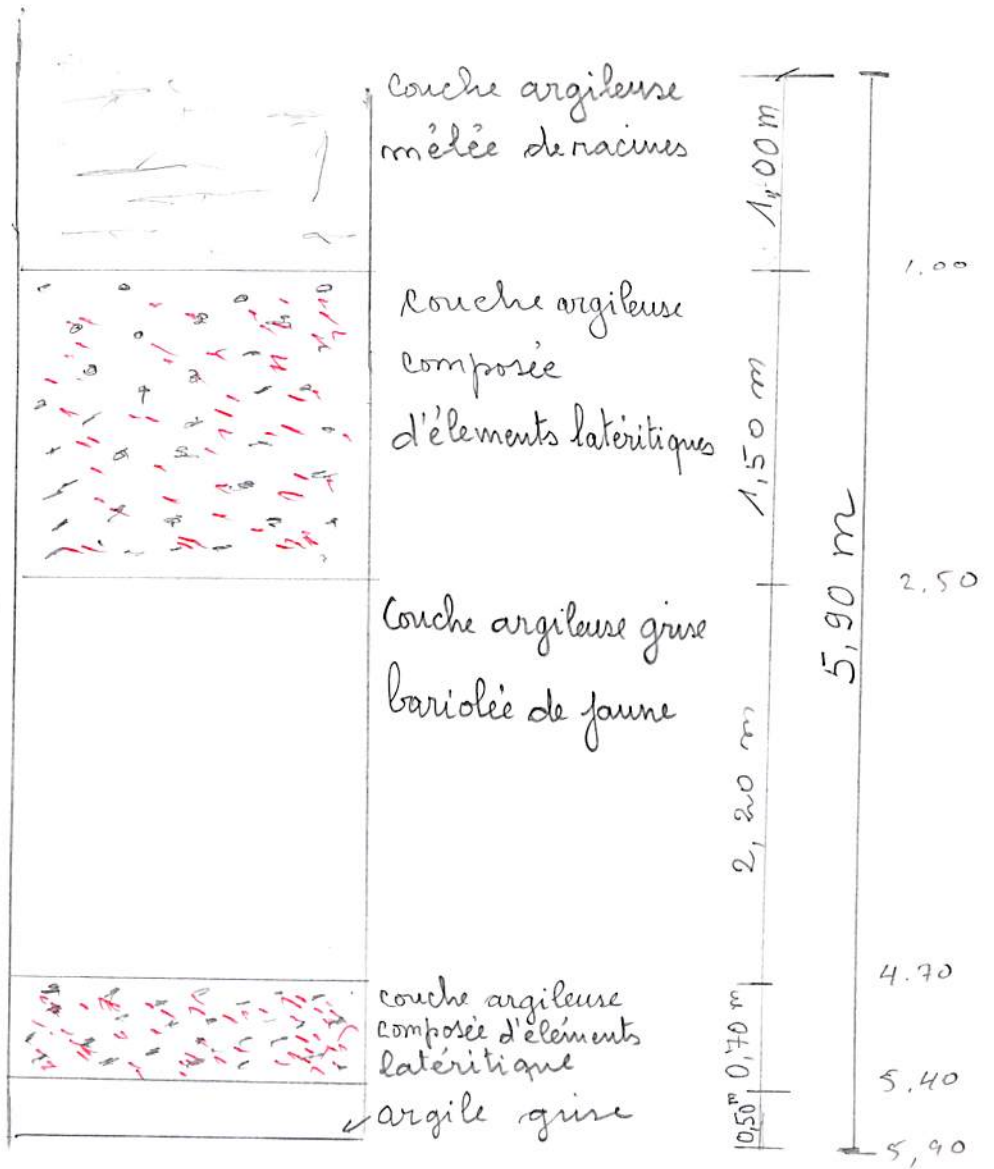 couche argileuse
mêlée de racines
1,00 m
1.00
couche argileuse
composée
d'élements latéritiques
1,50 m
5,90 m
2.50
Couche argileuse grise
bariolée de jaune
2,20 m
4.70
couche argileuse
composée d'éléments
latéritique
0,70 m
5.40
argile grise
0,50 m
5,90